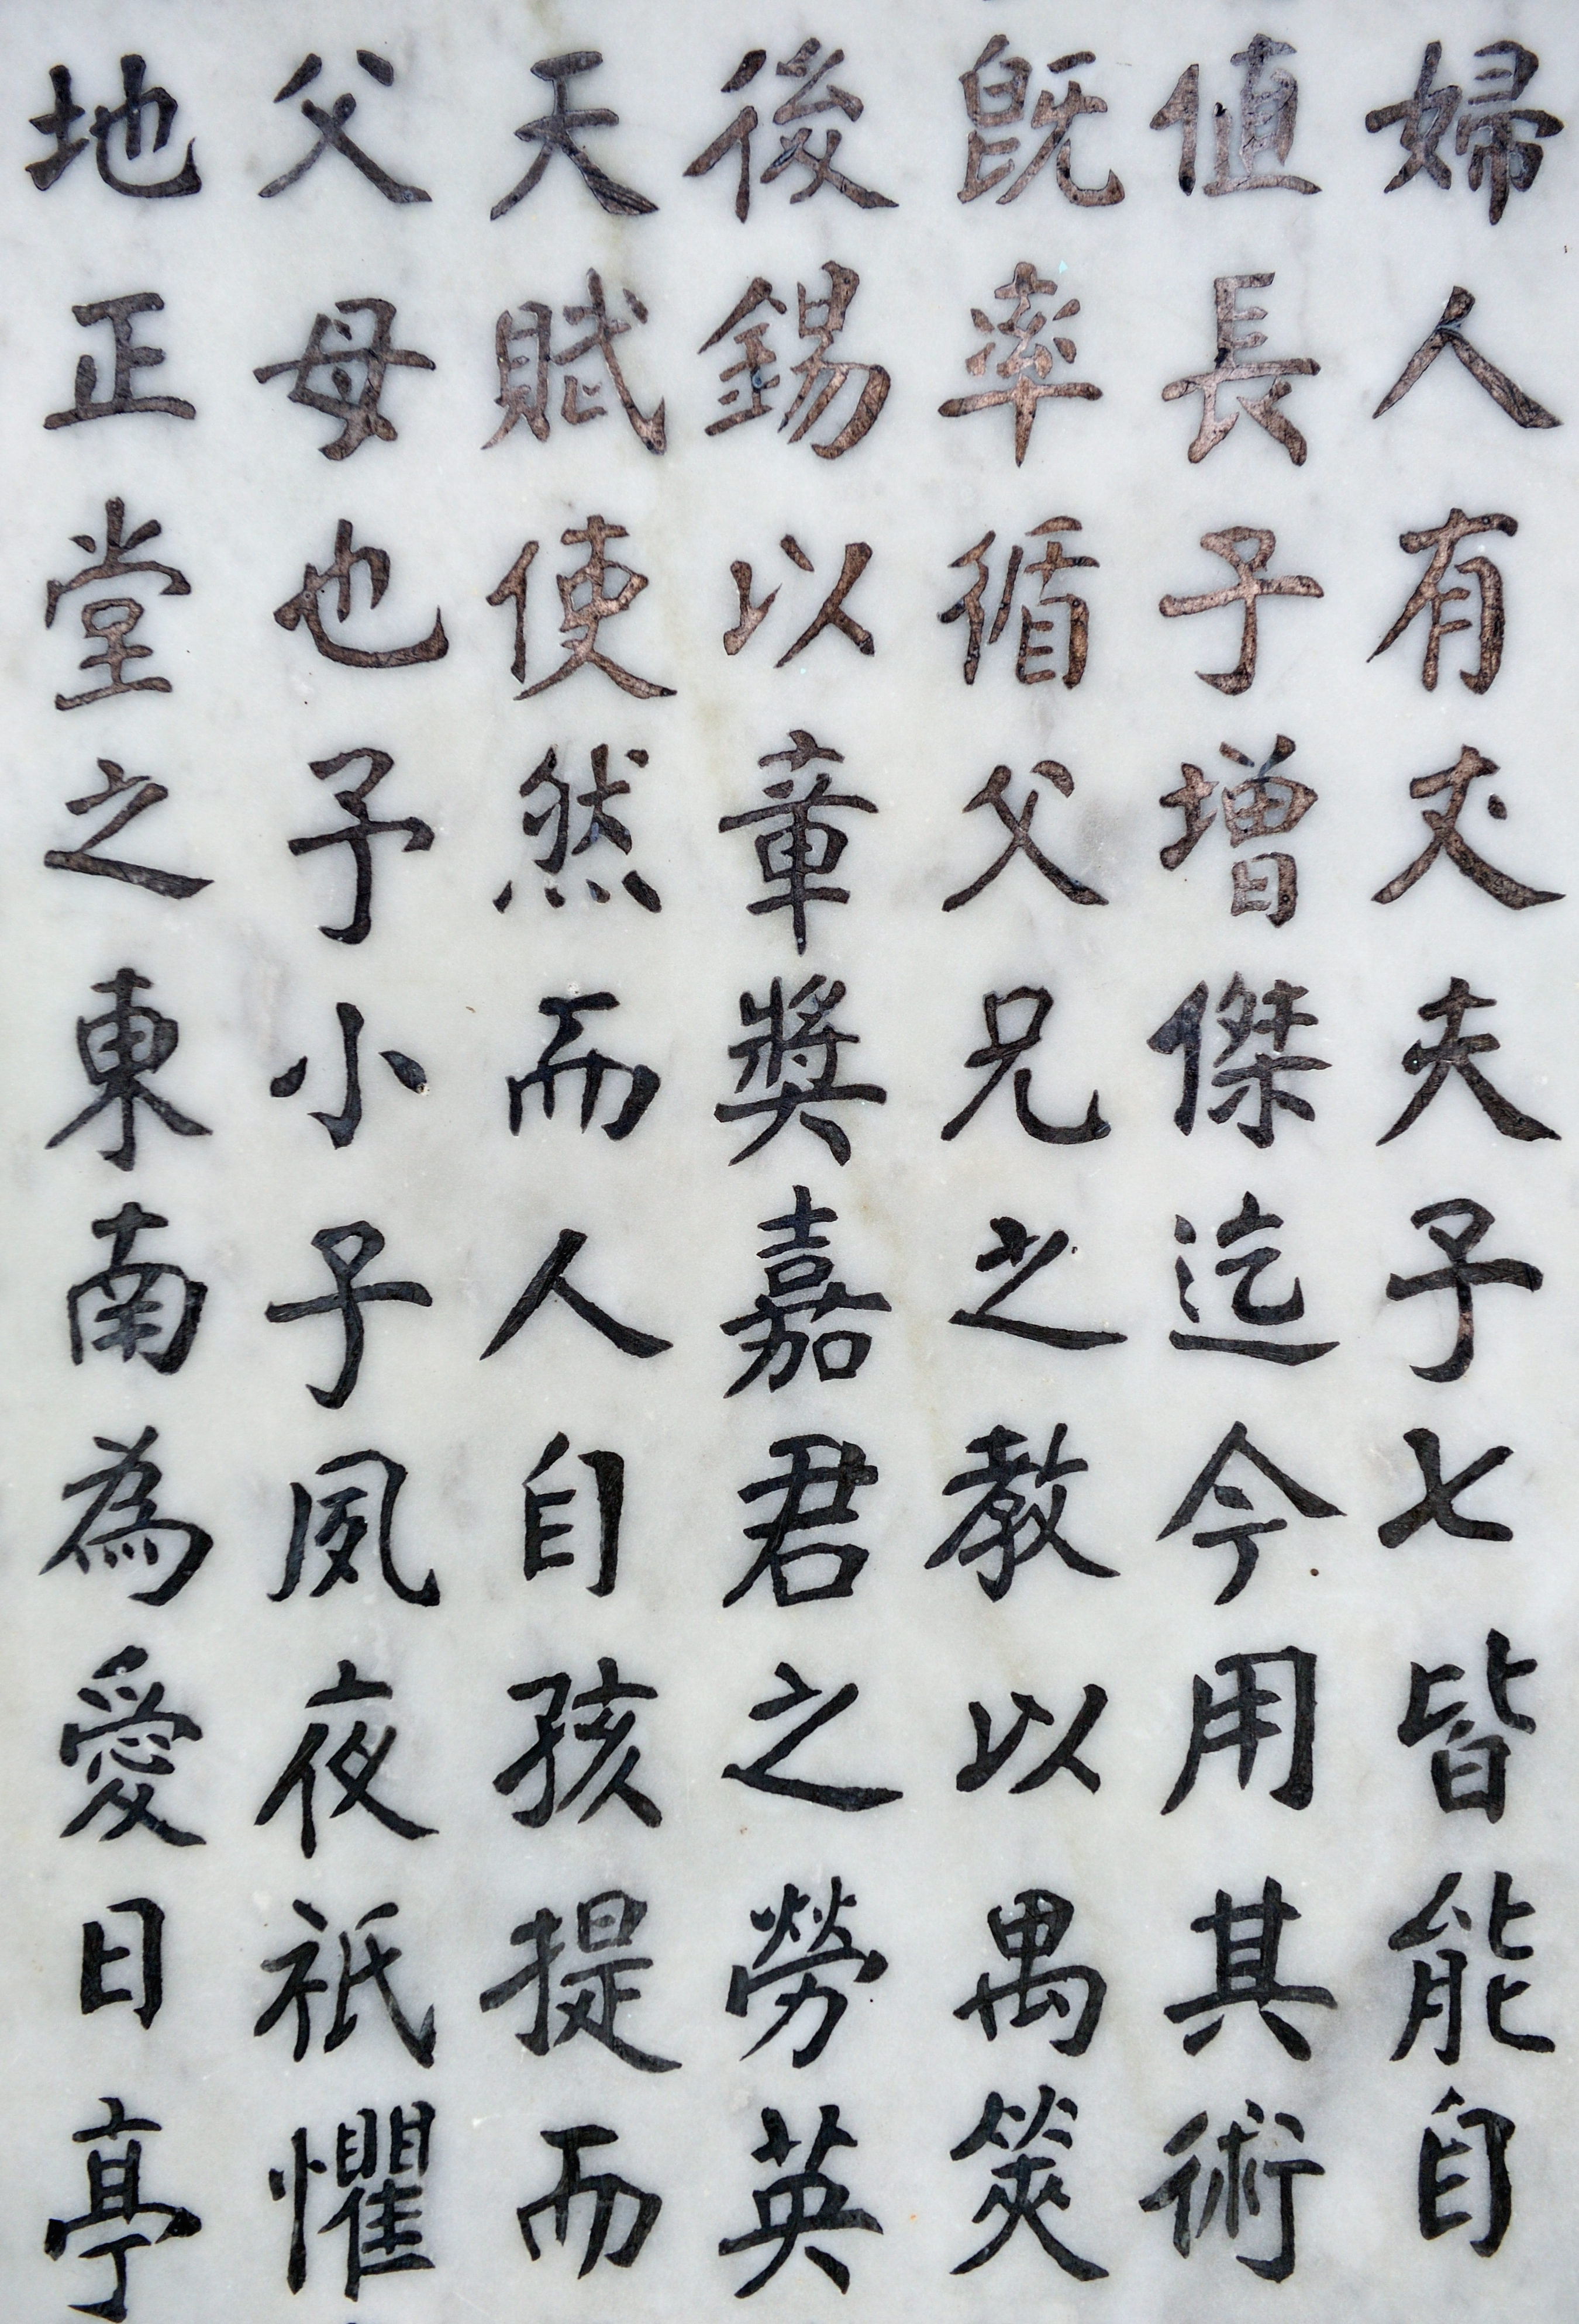 婦人有丈夫子七皆能自
值長子增傑迄今用其術
既率循父兄之教以禺筴
後錫以章奬嘉君之勞英
天賦使然而人自孩提而
父母也予小子夙夜祇懼
地正堂之東南為愛日亭